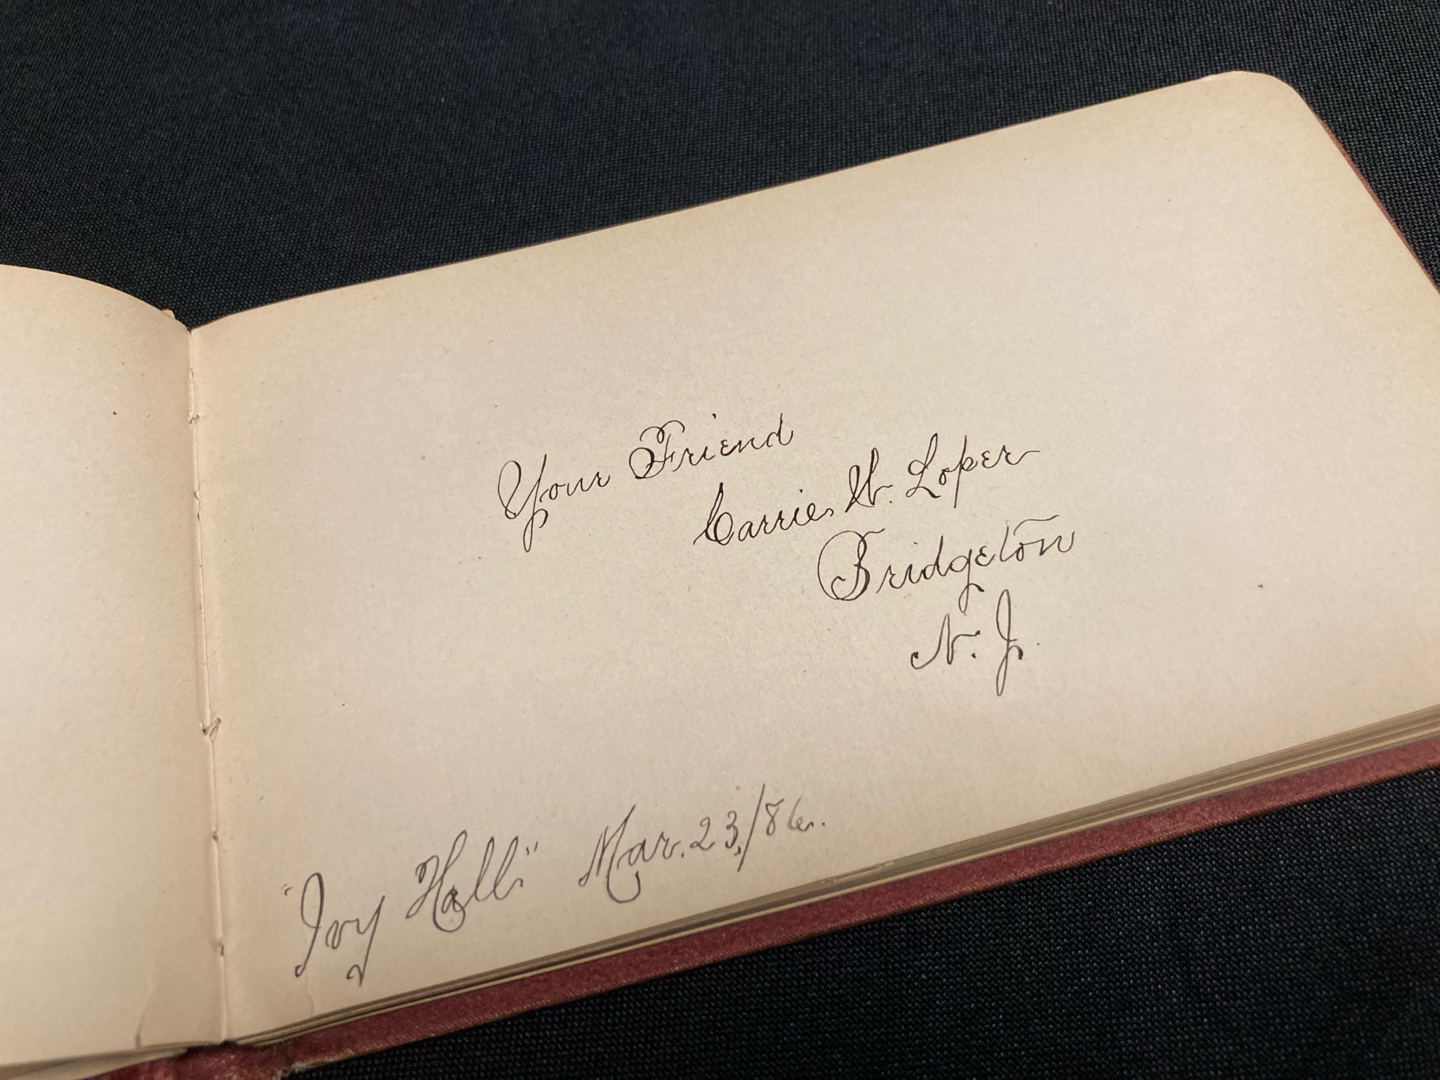 Your Friend
Carrie W. Loper
Bridgeton
N. J.
"Ivy Hall" Mar. 23,/86.